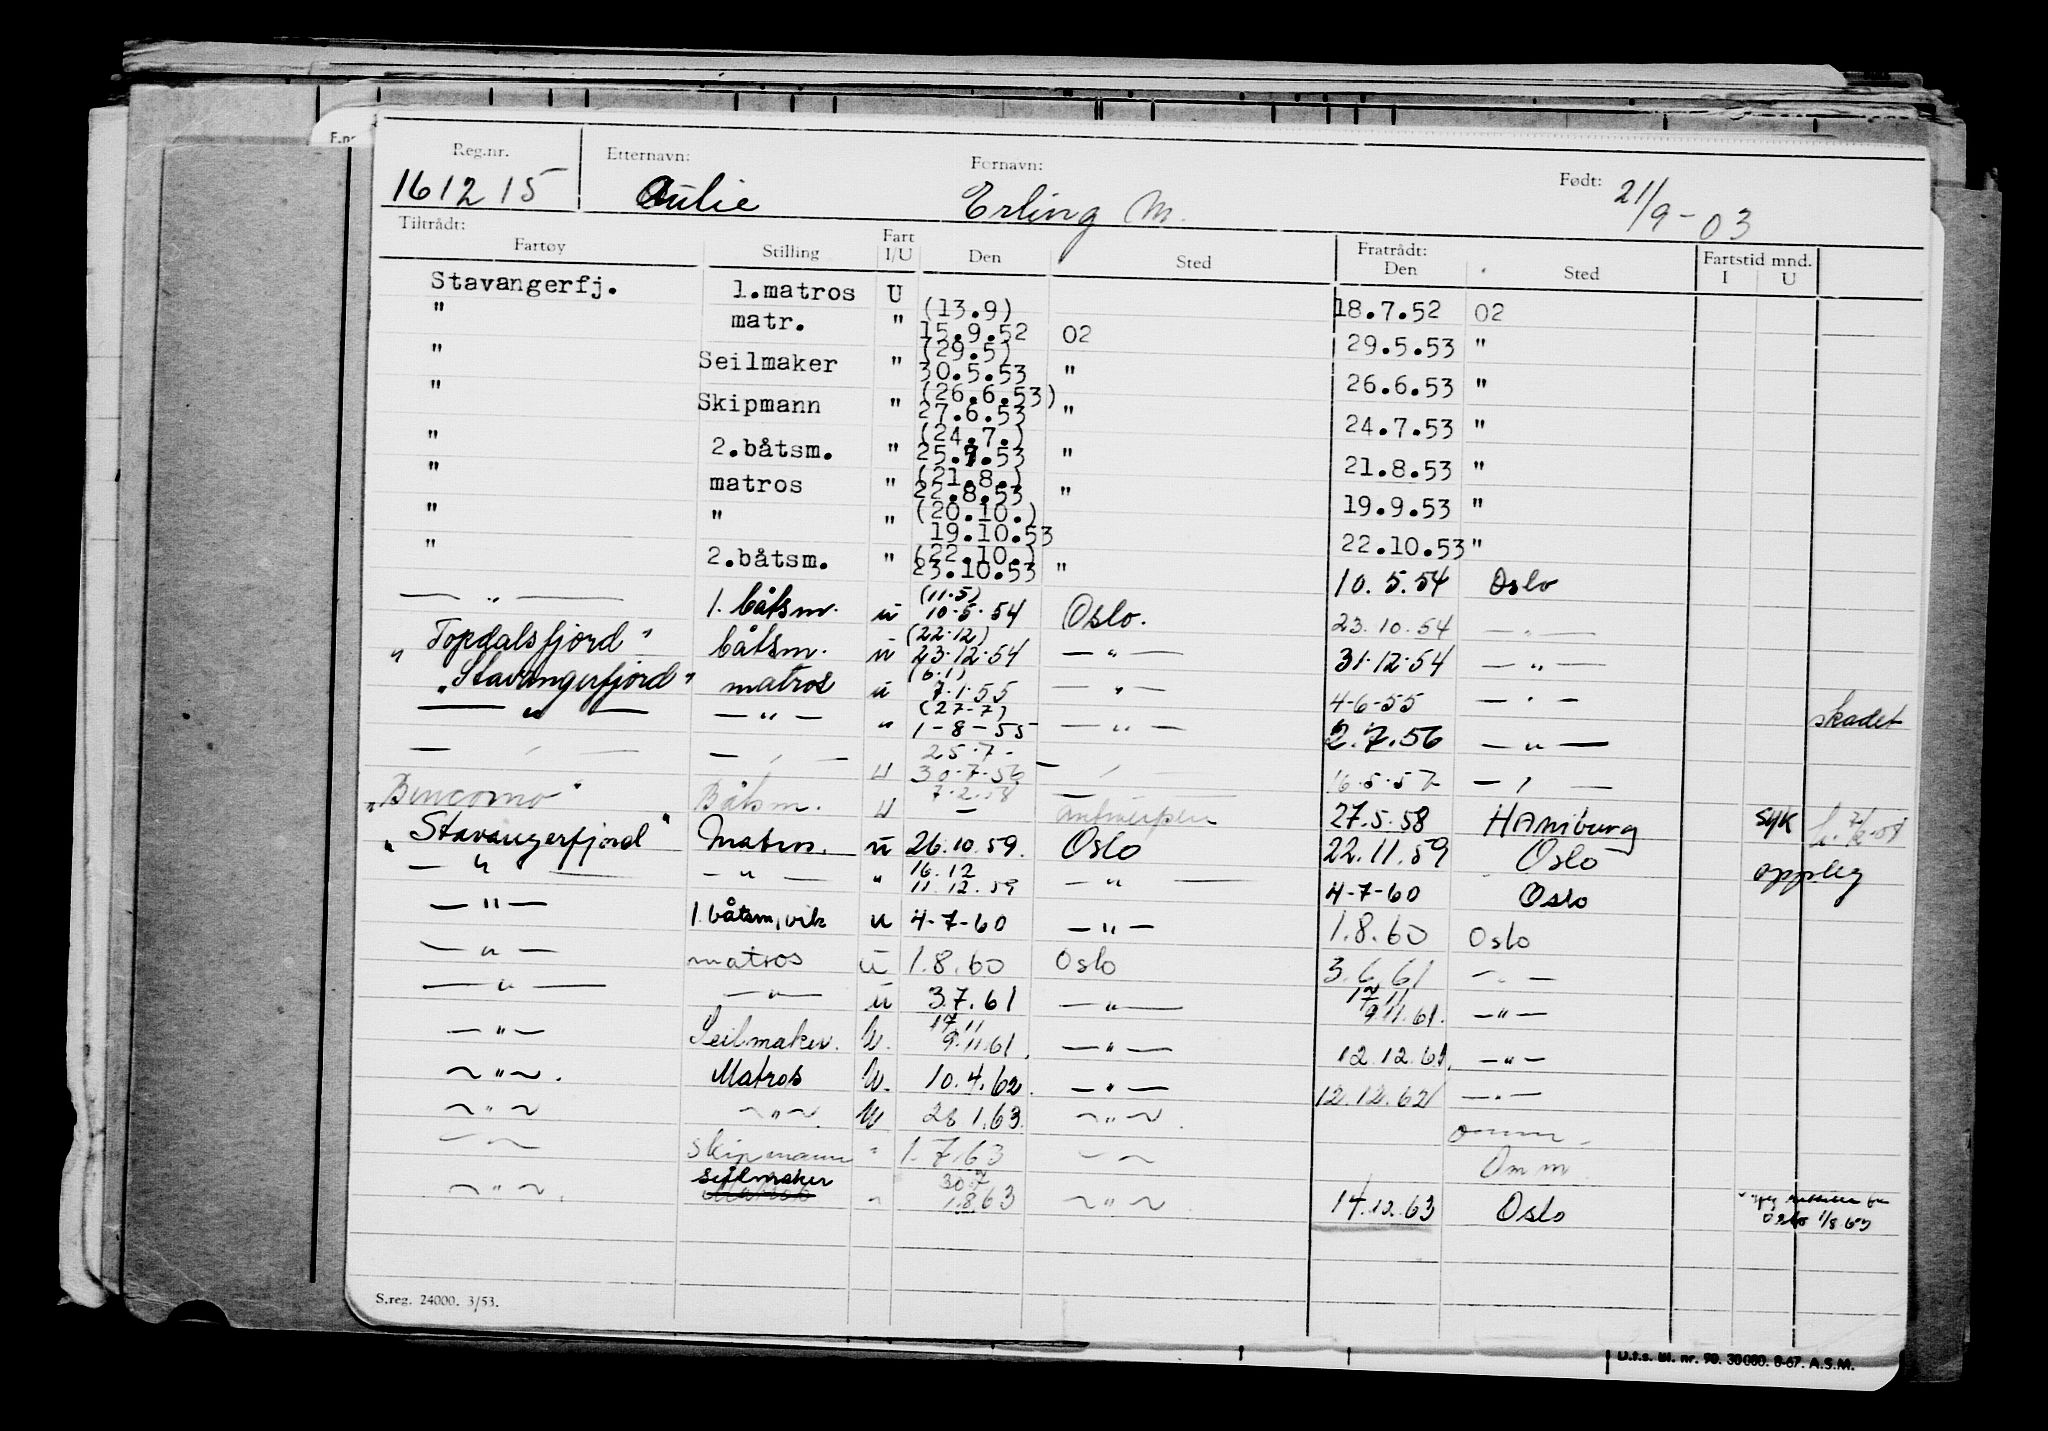 Reg.nr. Etternavn: Fornavn: Født:
161215 Aulie Erling M. 21/9-03
Tiltrådt: Fratrådt:
Fartøy Stilling Fart I/U Den Sted Den Sted Fartstid mnd. I U
Stavangerfj. 1.matros U 18.7.52 02
" matr. " (13.9) 15.9.52 02 29.5.53 "
" Seilmaker " (29.5) 30.5.53 " 26.6.53 "
" Skipmann " (26.6.53) 27.6.53 " 24.7.53 "
" 2.båtsm. " (24.7.) 25.7.53 " 21.8.53 "
" matros " (21.8.) 22.8.53 " 19.9.53 "
" " " (20.10.) 19.10.53 22.10.53 "
" 2.båtsm. " (22.10.) 23.10.53 " 10.5.54 Oslo
— " — 1. båtsm. u (11.5) 10.5.54 Oslo. 23.10.54 — " —
"Topdalsfjord" båtsm. u (22.12) 23.12.54 — " — 31.12.54 — " —
"Stavangerfjord" matros u (6.1) 7.1.55 — " — 4-6-55 — " —
— " — — " — " (27-7) 1-8-55 — " — 2.7.56 — " — skadet
— " — — " — u 25.7- 30.7.56 — " — 16.5.57 — " —
"Bencomo" Båtsm. u 7.2.58 — Antwerpen 27.5.58 Hamburg syk
"Stavangerfjord" Matros. u 26.10.59. Oslo 22.11.59 Oslo opplag
— " — — " — " 16.12 11.12.59 — " — 4-7-60 Oslo
— " — 1. båtsm, vik u 4-7-60 — " — 1.8.60 Oslo
— " — matros u 1.8.60 Oslo 3.6.61 — " —
— " — — " — u 3.7.61 — " — 17.11 9.11.61. — " —
— " — Seilmaker. U. 17.11 9.11.61. — " — 12.12.61. — " —
— " —. Matros U. 10.4.62. — " — 12.12.62 — " —
— " — — " —. U 28 1.63. — " —. omm.
— " — Skipmann " 1.7.63 — " — Omm
— " —. seilmaker " 30.7 1.8.63 — " —. 14.12.63 Oslo
Oslo 1/8 63
S.reg. 24000. 3/53.
U.t.s. bl. nr. 90. 30 000. 8-67. A.S.M.